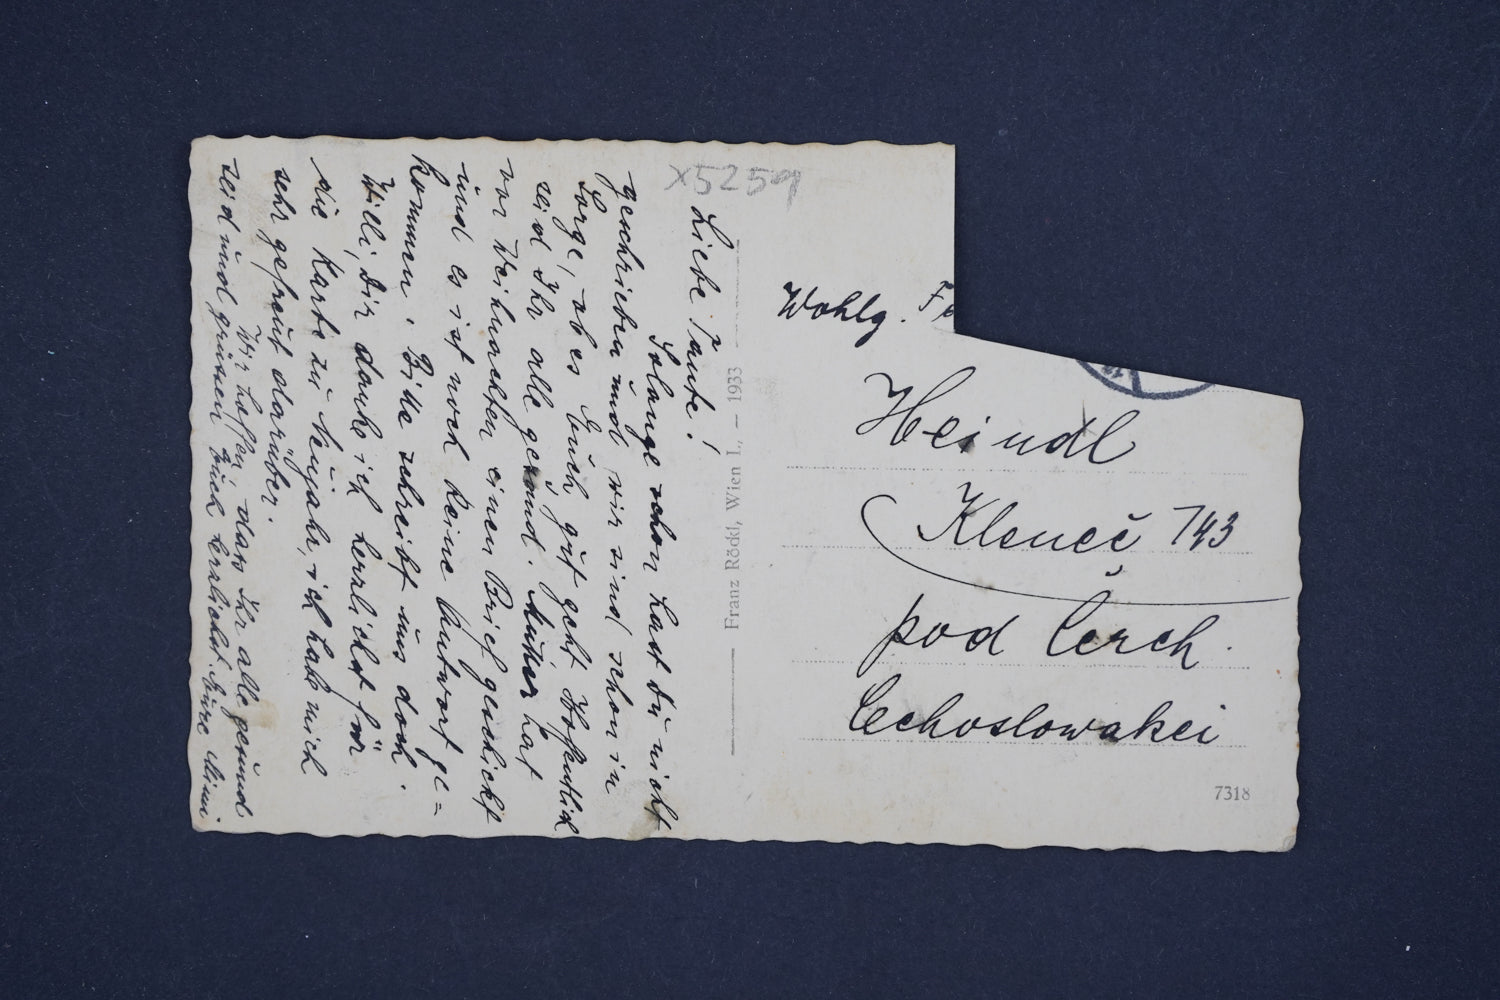 x5259
Liebe Tante!
Solange schon hast Du nicht
geschrieben und wir sind schon in
Sorge, ob es Euch gut geht. Hoffentlich
seid Ihr alle gesund. Mutter hat
vor Weihnachten einen Brief geschickt
und es ist noch keine Antwort ge=
kommen. Bitte schreibt uns doch.
Willi, Dir danke ich herzlichst für
die Karte zu Neujahr, ich hab mich
sehr gefreut darüber.
Wir hoffen, dass Ihr alle gesund
seid und grüssen Euch herzlichst Eure Mimi
Franz Rödkl, Wien I., — 1933
Wohlg. F
Heindl
Kleneč 743
pod Čerch.
Čechoslowakei
7318